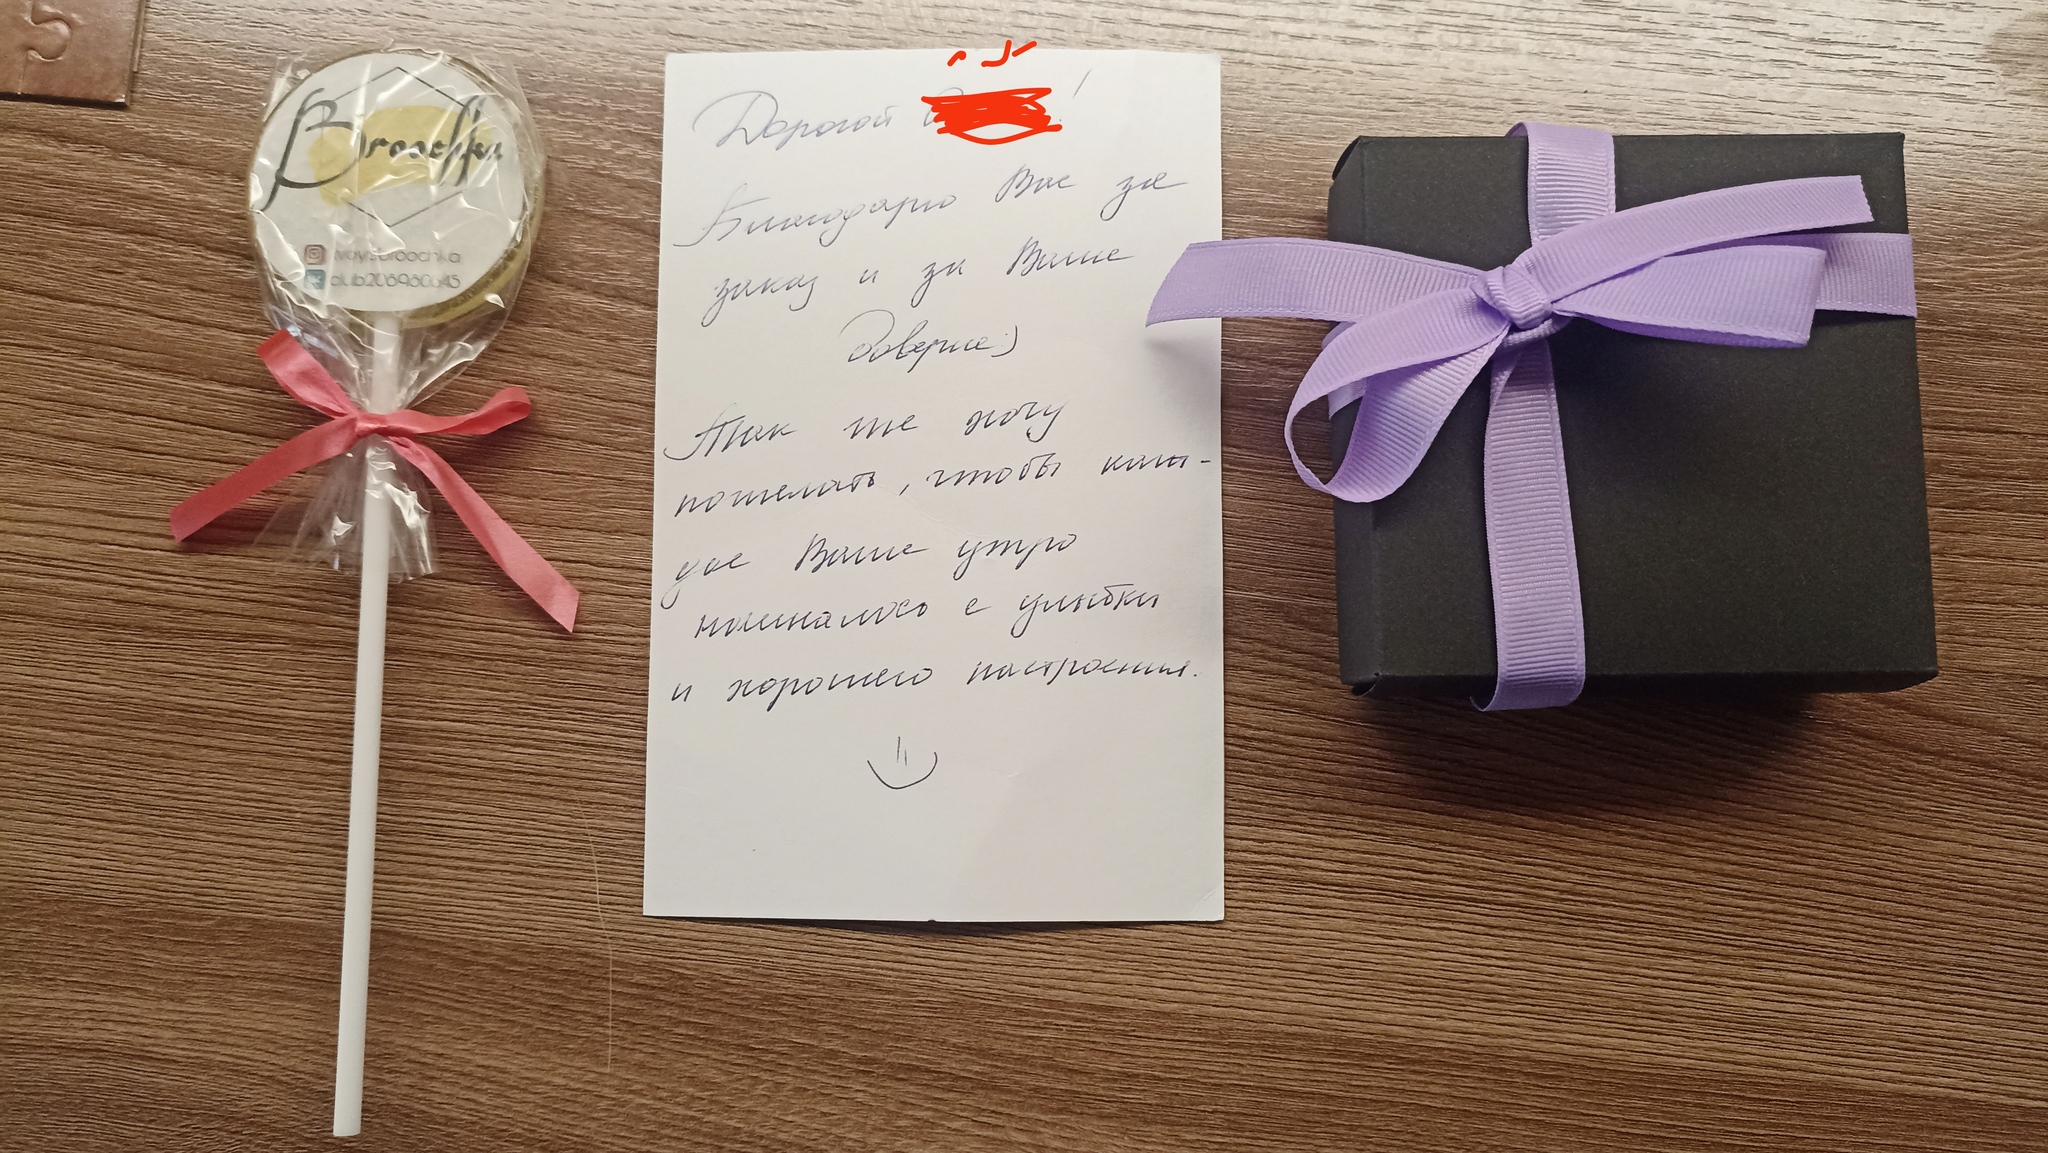 Broochka
club206960645
Дорогой !
Благодарю Вас за
заказ и за Ваше
доверие:)
Так же хочу
пожелать, чтобы каж-
дое Ваше утро
начиналось с улыбки
и хорошего настроения.